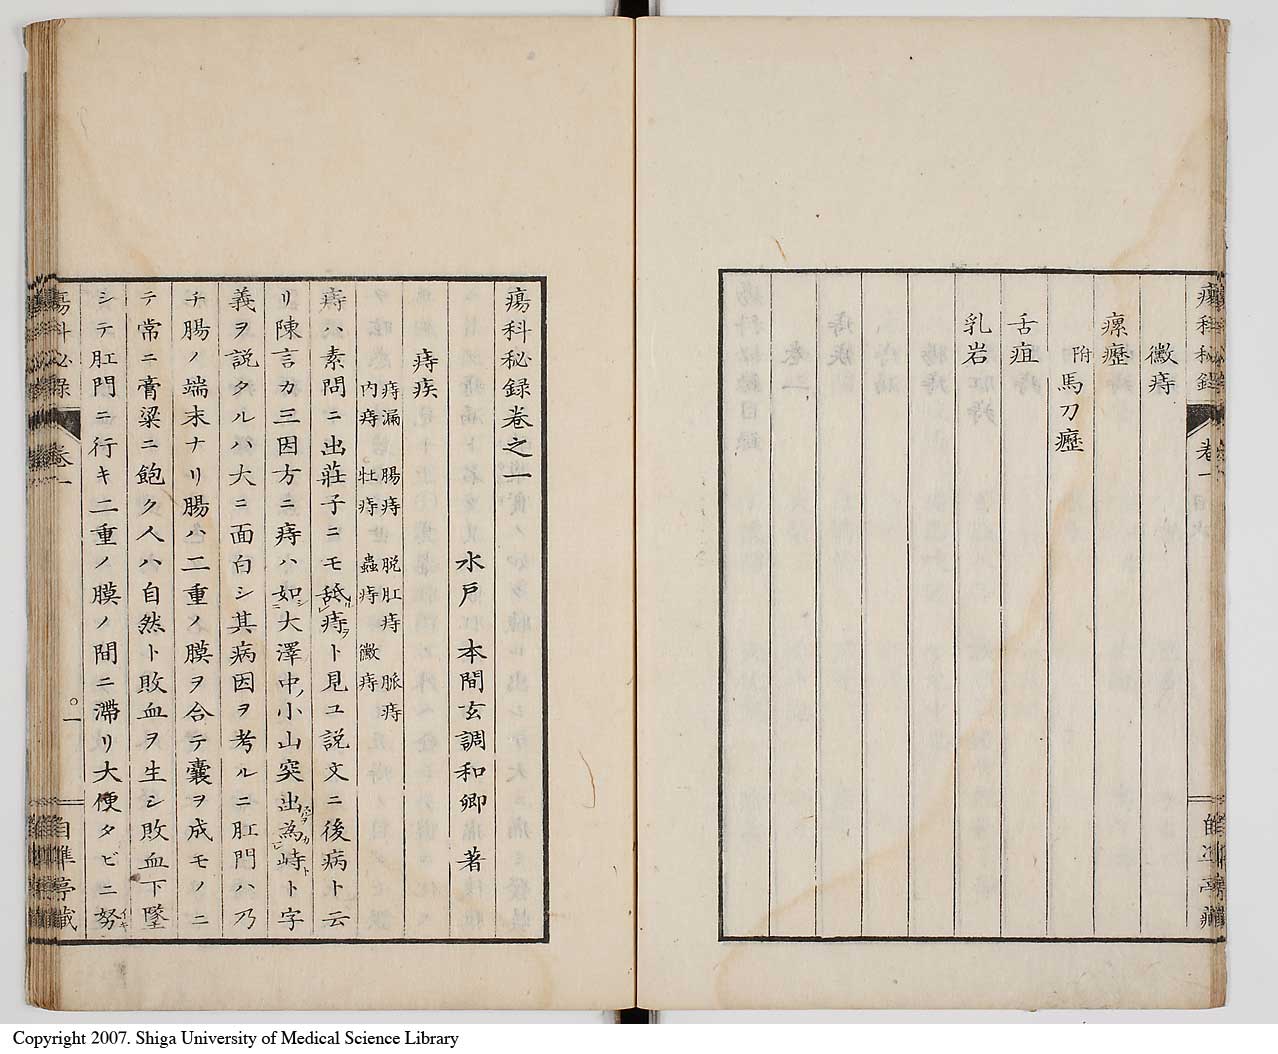 黴痔
瘰癧
附馬刀癧
舌疽
乳岩
瘍科秘録
卷一
瘍科秘録卷之一
水戸 本間玄調和卿 著
痔疾
痔漏 腸痔 脱肛痔 脈痔
内痔 牡痔 蟲痔 黴痔
痔ハ素問ニ出莊子ニモ舐痔ヲト見ユ説文ニ後病ト云
リ陳言カ三因方ニ痔ハ如大澤中ノ小山突出為峙ト字
義ヲ説クタルハ大ニ面白シ其病因ヲ考ルニ肛門ハ乃
チ腸ノ端末ナリ腸ハ二重ノ膜ヲ合テ囊ヲ成モノニ
テ常ニ膏粱ニ飽ク人ハ自然ト敗血ヲ生シ敗血下墜
シテ肛門ニ行キ二重ノ膜ノ間ニ滯リ大便タビニ努
瘍科秘録
卷一
一
自準亭藏
Copyright 2007. Shiga University of Medical Science Library